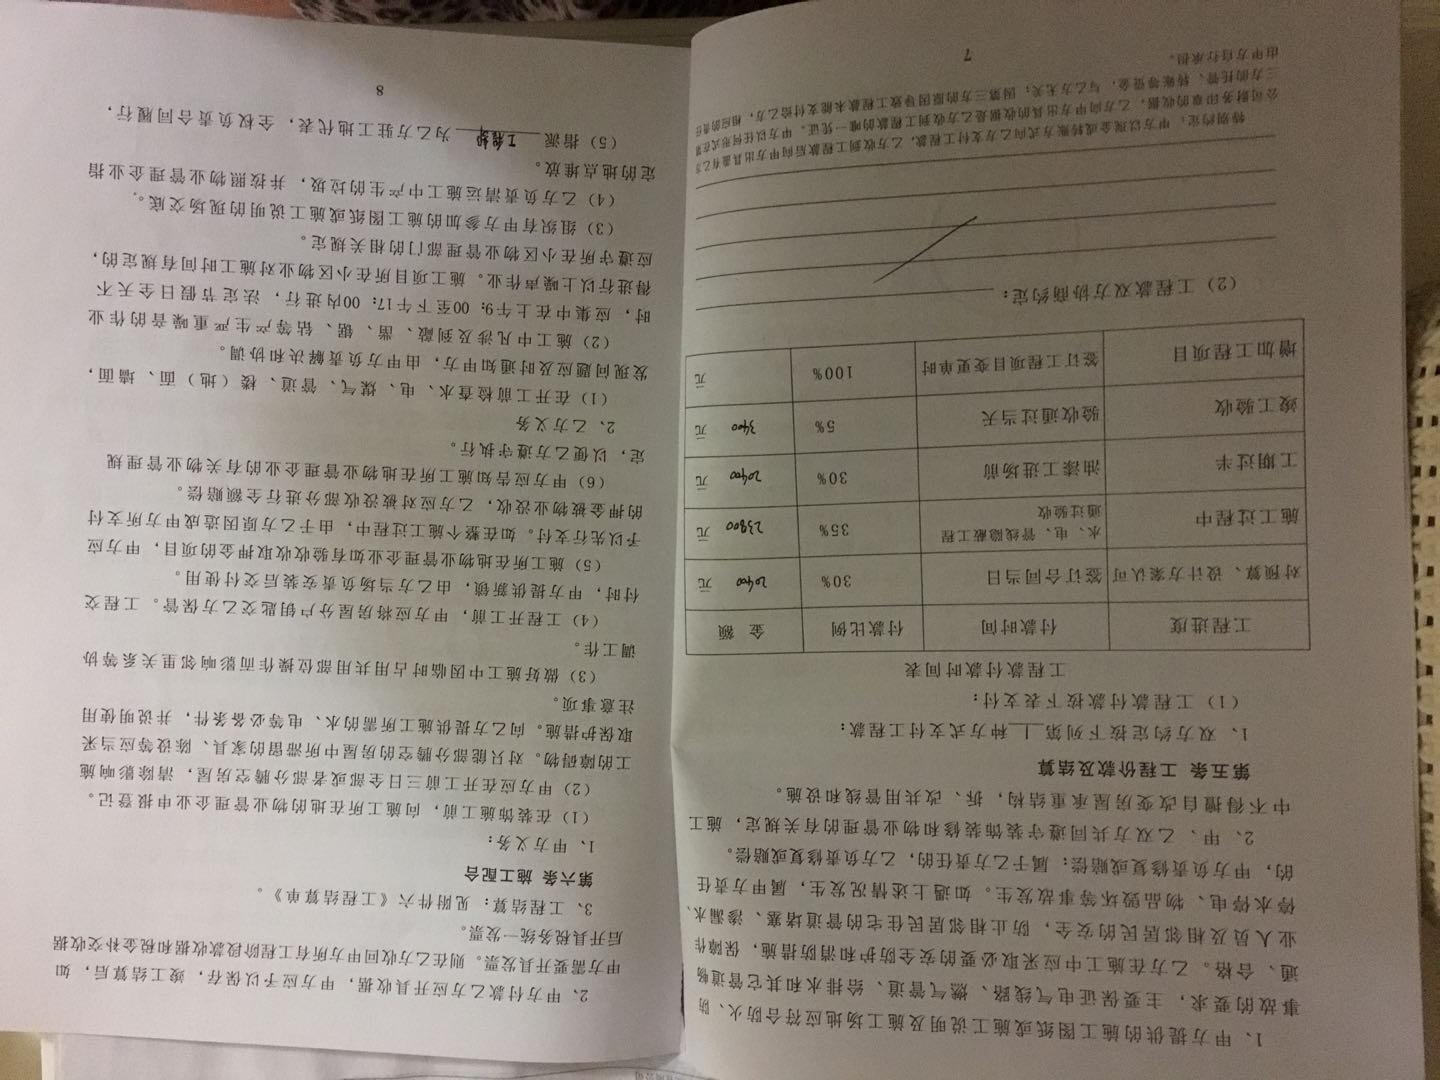 1、甲方提供的施工图纸或施工说明及施工场地应符合防火、防
事故的要求，主要保证电气线路、燃气管道、给排水和其它管道畅
通、合格。乙方在施工中应采取必要的安全防护和消防措施，保障作
业人员及相邻居民的安全，防止相邻居民住宅的管道堵塞、渗漏水、
停水停电、物品毁坏等事故发生。如遇上述情况发生，属甲方责任
的，甲方负责修复或赔偿；属于乙方责任的，乙方负责修复或赔偿。
2、甲、乙双方共同遵守装饰装修和物业管理的有关规定，施工
中不得擅自改变房屋承重结构，拆、改共用管线和设施。
第五条 工程价款及结算
1、双方约定按下列第 1 种方式支付工程款：
（1）工程款付款按下表支付：
工程款付款时间表
工程进度 付款时间 付款比例 金 额
对预算、设计方案认可 签订合同当日 30% 20400 元
施工过程中 水、电、管线隐蔽工程
通过验收 35% 23800 元
工期过半 油漆工进场前 30% 20400 元
竣工验收 验收通过当天 5% 3400 元
增加工程项目 签订工程项目变更单时 100% 元
（2）工程款双方协商约定：
特别约定：甲方以现金或转账方式向乙方支付工程款，乙方收到工程款后向甲方出具盖有乙方
公司财务印章的收据，乙方向甲方出具的收据是乙方收到工程款的唯一凭证。甲方以任何形式在第
三方的托管、转账等资金，与乙方无关；因第三方的原因导致工程款未能支付给乙方，相应的责任
由甲方自行承担。
7
2、甲方付款乙方应开具收据，甲方应予以保存，竣工结算后，如
甲方需要开具发票。则在乙方收回甲方所有工程阶段款收据和税金补交收据
后开具税务统一发票。
3、工程结算：见附件六《工程结算单》。
第六条 施工配合
1、甲方义务：
（1）在装饰施工前，向施工所在地的物业管理企业申报登记。
（2）甲方应在开工前三日全部或者部分腾空房屋，清除影响施
工的障碍物。对只能部分腾空的房屋中所滞留的家具、陈设等应当采
取保护措施。向乙方提供施工所需的水、电等必备条件，并说明使用
注意事项。
（3）做好施工中因临时占用共用部位操作而影响邻里关系等协
调工作。
（4）工程开工前，甲方应将房屋分户钥匙交乙方保管。工程交
付时，甲方提供新锁，由乙方当场负责安装后交付使用。
（5）施工所在地物业管理企业如有验收收取押金的项目，甲方应
予以先行支付。如在整个施工过程中，由于乙方原因造成甲方所支付
的押金被物业没收，乙方应对被没收部分进行全额赔偿。
（6）甲方应告知施工所在地物业管理企业的有关物业管理规
定，以便乙方遵守执行。
2、乙方义务
（1）在开工前检查水、电、煤气、管道、楼（地）面、墙面，
发现问题应及时通知甲方，由甲方负责解决和协调。
（2）施工中凡涉及到敲、凿、锯、钻等产生严重噪音的作业
时，应集中在上午9：00至下午17：00内进行，法定节假日全天不
得进行以上噪声作业。施工项目所在小区物业对施工时间有规定的，
应遵守所在小区物业管理部门的相关规定。
（3）组织有甲方参加的施工图纸或施工说明的现场交底。
（4）乙方负责清运施工中产生的垃圾，并按照物业管理企业指
定的地点堆放。
（5）指派 工程部 为乙方驻工地代表，全权负责合同履行，
8